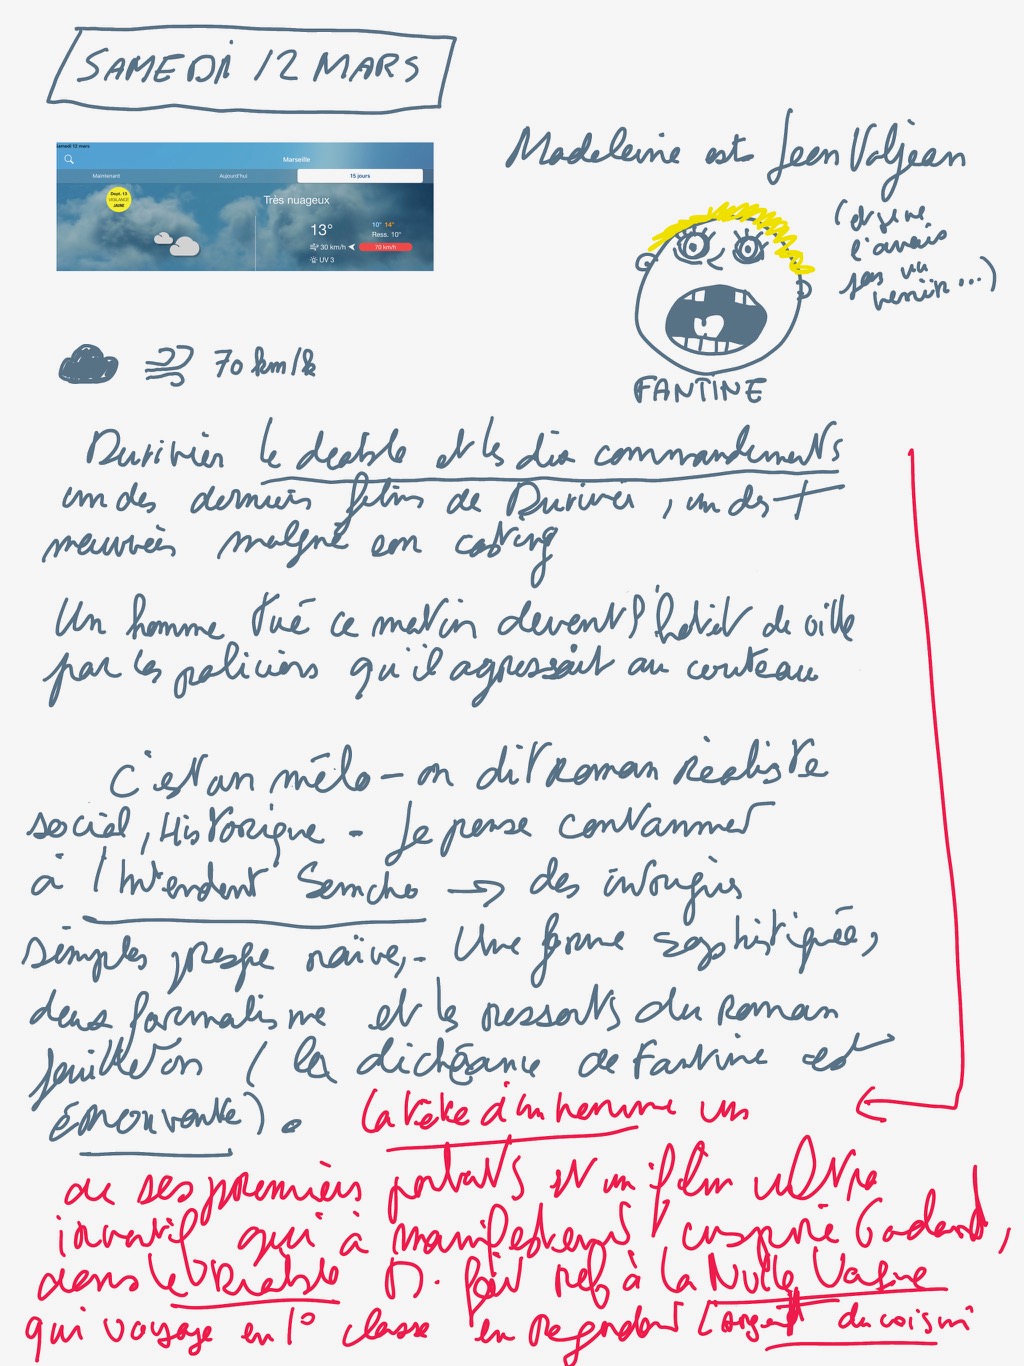 SAMEDI 12 MARS
samedi 12 mars
Marseille
Maintenant
Aujourd'hui
15 jours
Dept. 13
VIGILANCE
JAUNE
Très nuageux
13°
10° 14°
Ress. 10°
30 km/h
70 km/h
UV 3
Madeleine est Jean Valjean
(et je ne
l'avais
pas vu
venir...)
FANTINE
70 km/h
Duvivier le diable et les dix commandements
un des derniers films de Duvivier, un des +
mauvais malgré son casting
Un homme tué ce matin devant l'hôtel de ville
par les policiers qu'il agressait au couteau
C'est un mélo - on dit roman réaliste
social, Historique - Je pense constamment
à l'Intendant Sansho → des intrigues
simples presque naïves - Une forme sophistiquée,
deux formalisme et les ressorts du roman
feuilleton (la déchéance de Fantine est
émouvante).
La tête d'un homme un
de ses premiers parlants est un film ultra
inventif qui a manifestement inspiré Godard,
dans le Diable D. fait ref à la Nvlle Vague
qui voyage en 1° classe en regardant l'argent du voisin